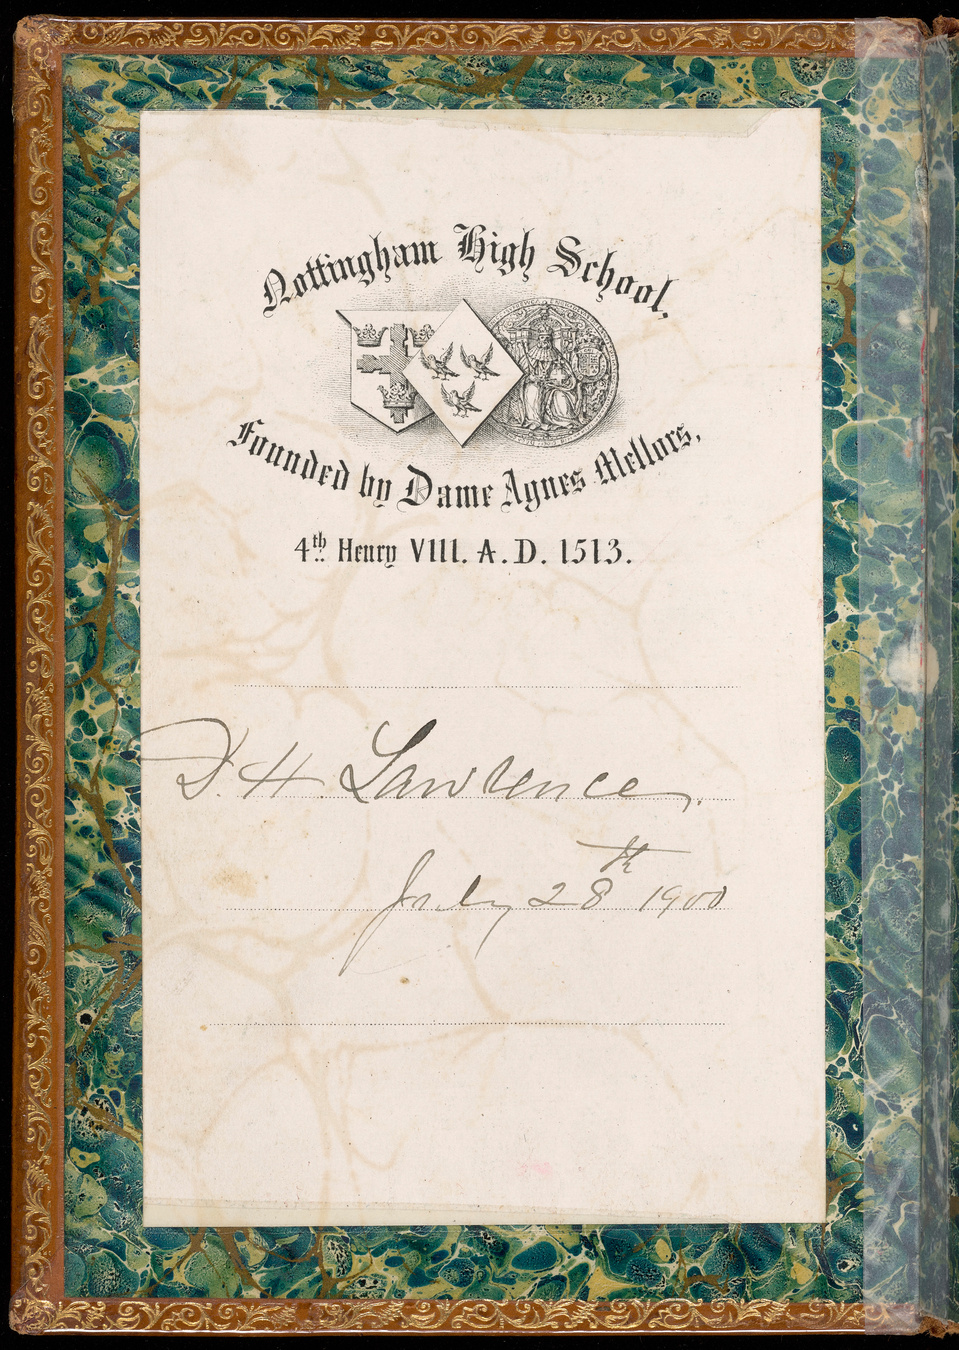 Nottingham High School.
Founded by Dame Agnes Mellors,
4th Henry VIII. A.D. 1513.
D. H. Lawrence.
July 28th 1900